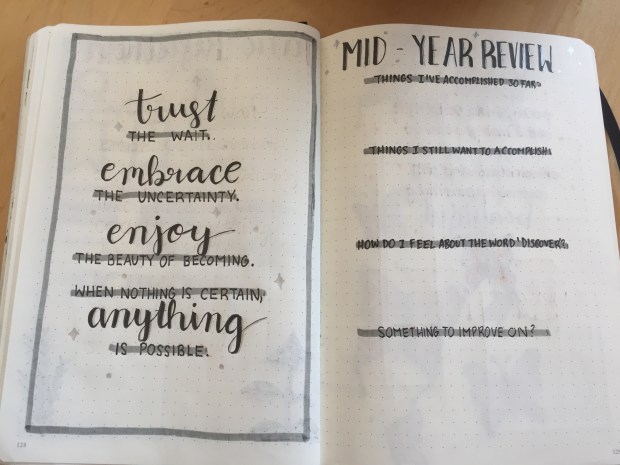 trust
THE WAIT.
embrace
THE UNCERTAINTY.
enjoy
THE BEAUTY OF BECOMING.
WHEN NOTHING IS CERTAIN,
anything
IS POSSIBLE.
128
MID - YEAR REVIEW
THINGS I'VE ACCOMPLISHED SO FAR?
THINGS I STILL WANT TO ACCOMPLISH.
HOW DO I FEEL ABOUT THE WORD 'DISCOVER'?
SOMETHING TO IMPROVE ON?